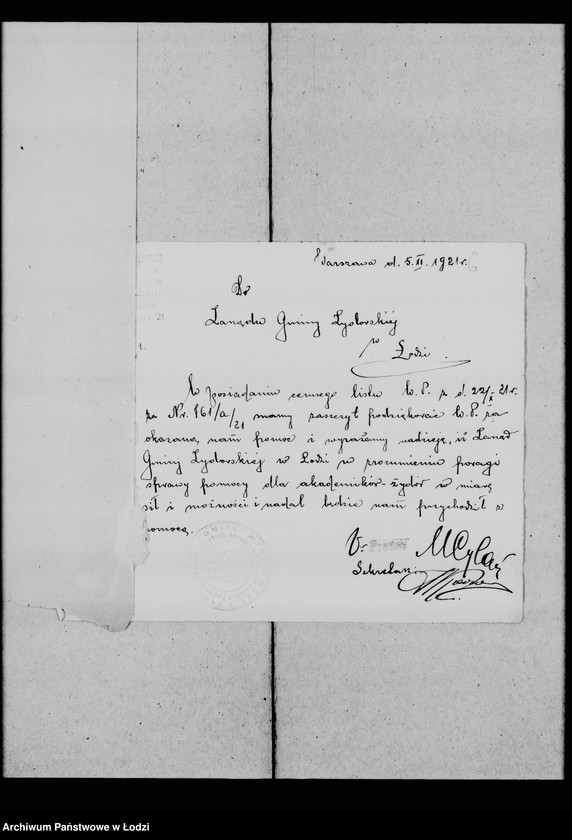 Warszawa d. 5.II.1921r.
Do
Zarządu Gminy Żydowskiéj
w Łodzi.
W posiadaniu cennego listu W.P. z d. 22/I 21r.
za Nr. 161/a/21 mamy zaszczyt podziękować W.P. za
okazaną nam pomoc i wyrażamy nadzieję, iż Zarząd
Gminy Żydowskiéj w Łodzi w zrozumieniu powagi
sprawy pomocy dla akademików-żydów w miarę
sił i możności i nadal będzie nam przychodził z
pomocą.
V- Prezes
Sekretarz
Archiwum Państwowe w Łodzi